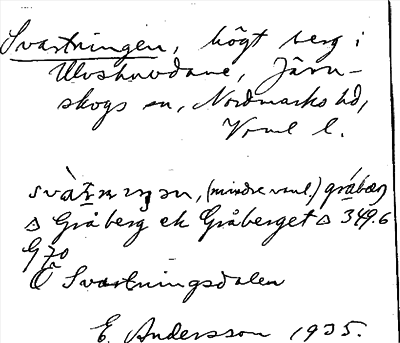 Svartningen, högt berg i
Ulvsknodane, Järn-
skogs sn, Nordmarks hd,
Vrml l.
svàt̄nıŋən, (mindre vanl.) gråbærj
△ Gråberg ek Gråberget △ 349.6
G 70
Ö Svartningsdalen
E. Andersson 1935.